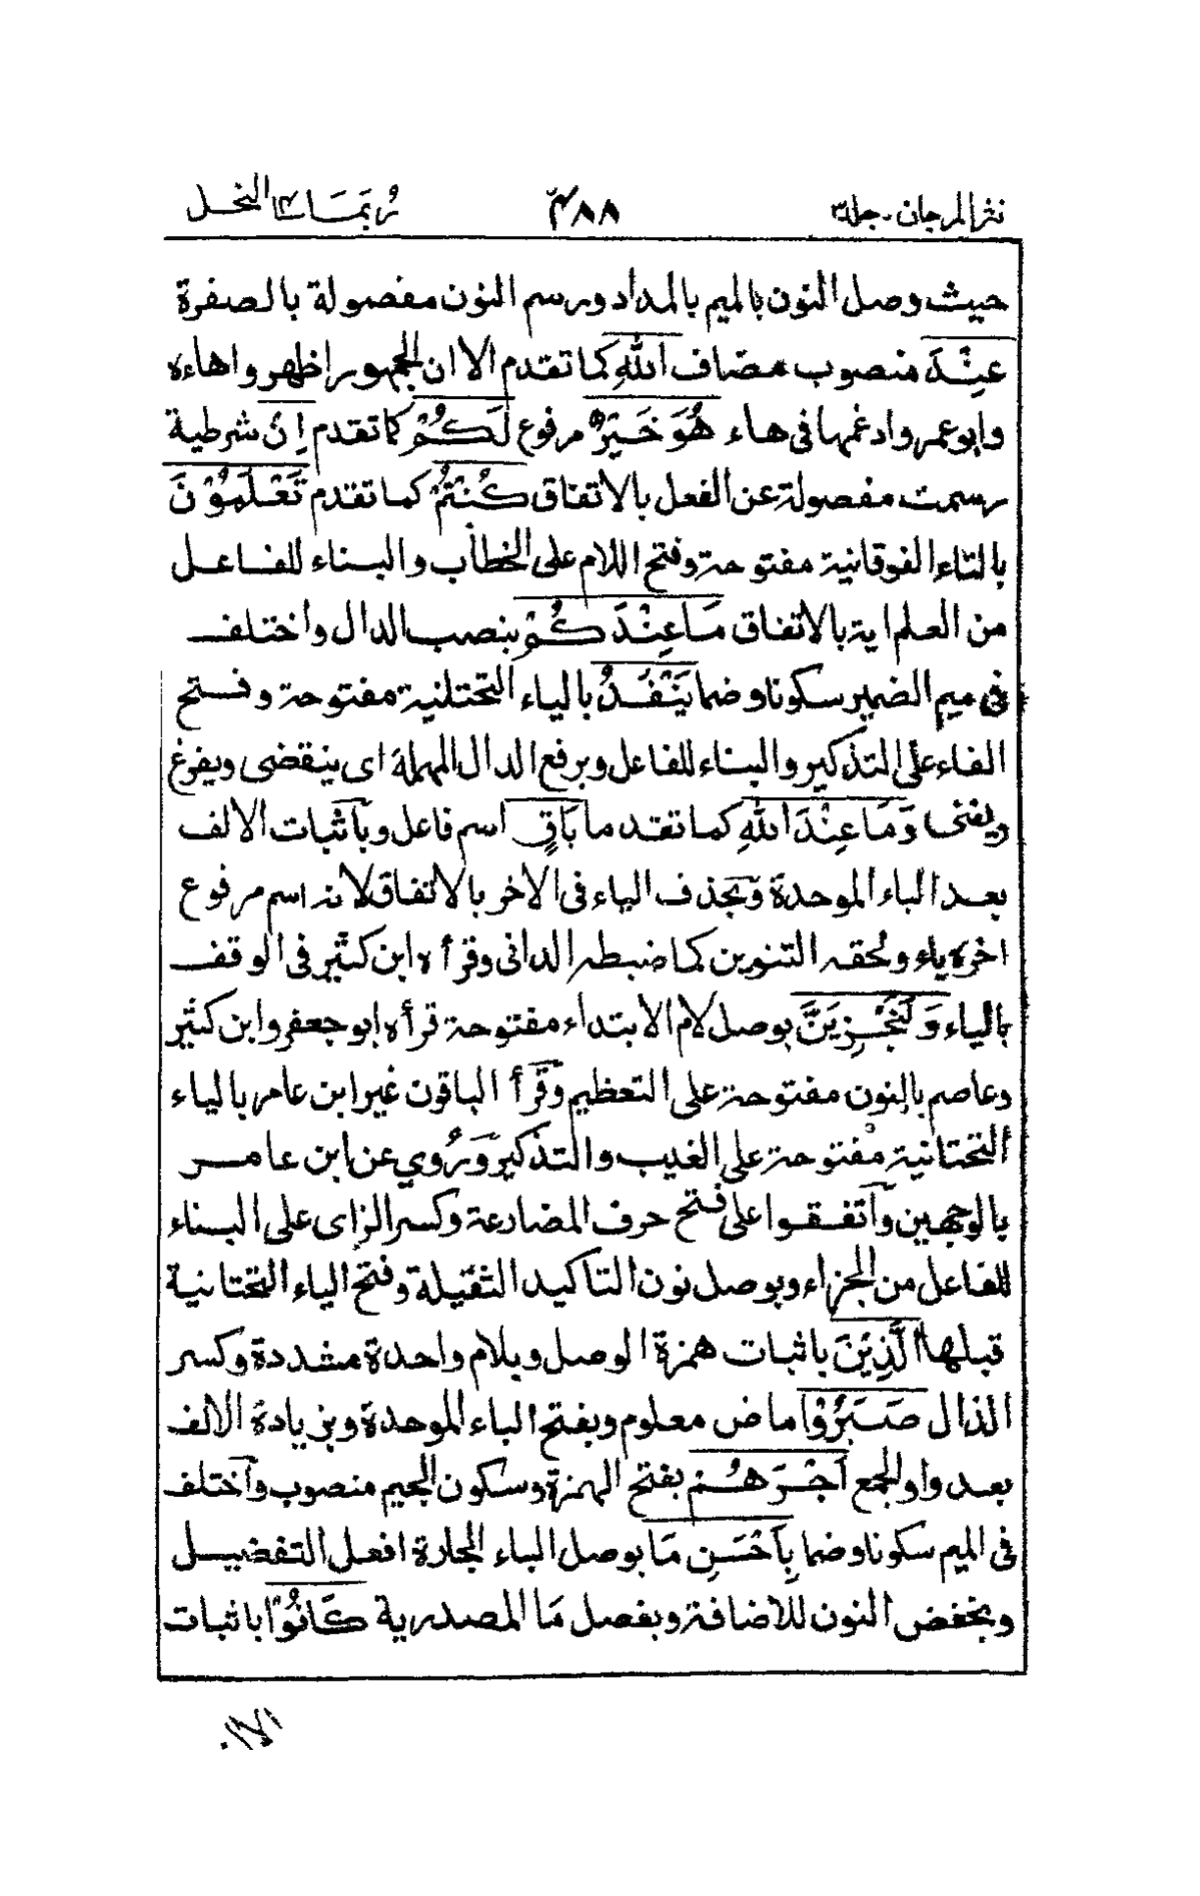 نثر المرجان - جلد٣ ٤٨٨ رُبَمَا ١٤ النحل
حيث وصل النون بالميم بالمداد ورسم النون مفصولة بالصفرة
عِنْدَ منصوب مضاف اللّٰهِ كما تقدم الا ان الجمهور اظهروا هاءه
وابو عمرو ادغمها فى هاء هُوَ خَيْرٌ مرفوع لَكُمْ كما تقدم اِنْ شرطية
رسمت مفصولة عن الفعل بالاتفاق كُنْتُمْ كما تقدم تَعْلَمُوْنَ
بالتاء الفوقانية مفتوحة وفتح اللام على الخطاب والبناء للفاعل
من العلم اية بالاتفاق مَا عِنْدَكُمْ بنصب الدال واختلف
فى ميم الضمير سكونا وضما يَنْفَدُ بالياء التحتانية مفتوحة وفتح
الفاء على التذكير والبناء للفاعل وبرفع الدال المهملة اى ينقضى ويفرغ
ويفنى وَمَا عِنْدَ اللّٰهِ كما تقدم ما بَاقٍ اسم فاعل وبآثبات الالف
بعد الباء الموحدة وبحذف الياء فى الاخر بالاتفاق لانه اسم مرفوع
اخره ياء ولحقه التنوين كما ضبطه الدانى وقرأه ابن كثير فى الوقف
بالياء وَلَنَجْزِيَنَّ بوصل لام الابتداء مفتوحة قرأه ابو جعفر وابن كثير
وعاصم بالنون مفتوحة على التعظيم وقرأ الباقون غير ابن عامر بالياء
التحتانية مفتوحة على الغيب والتذكير وَرُوي عن ابن عامر
بالوجهين وآتفقوا على فتح حرف المضارعة وكسر الزاى على البناء
للفاعل من الجزاء وبوصل نون التاكيد الثقيلة وفتح الياء التحتانية
قبلها الَّذِيْنَ باثبات همزة الوصل وبلام واحدة مشددة وكسر
الذال صَبَرُوْا ماض معلوم وبفتح الباء الموحدة وبزيادة الالف
بعد واو الجمع اَجْرَهُمْ بفتح الهمزة وسكون الجيم منصوب وآختلف
فى الميم سكونا وضما بِاَحْسَنِ مَا بوصل الباء الجارة افعل التفضيل
وبخفض النون للاضافة وبفصل مَا المصدرية كَانُوْا باثبات
الا